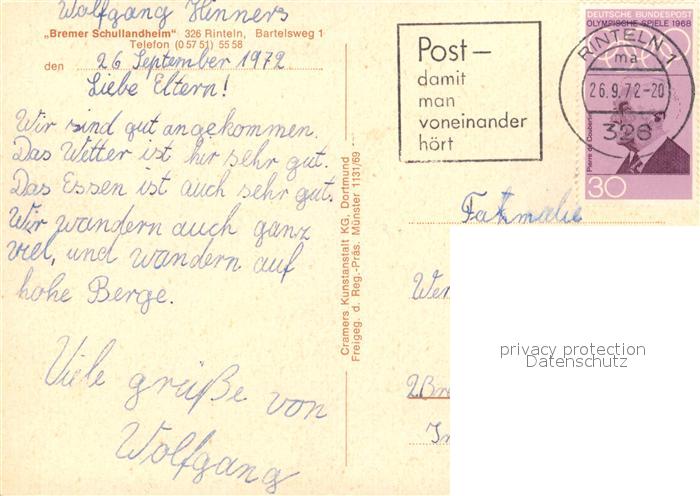 Wolfgang Hinners
„Bremer Schullandheim" 326 Rinteln, Bartelsweg 1
Telefon (0 57 51) 55 58
den 26 September 1972
Liebe Eltern!
Wir sind gut angekommen.
Das Wetter ist hir sehr gut.
Das Essen ist auch sehr gut.
Wir wandern auch ganz
viel, und wandern auf
hohe Berge.
Viele grüße von
Wolfgang
Cramers Kunstanstalt KG. Dortmund
Freigeg. d. Reg.-Präs. Münster 1131/69
Post –
damit
man
voneinander
hört
DEUTSCHE BUNDESPOST
OLYMPISCHE SPIELE 1968
Pierre de Coubertin
30
RINTELN 1
ma
26.9.72-20
326
Wer
2.Bre
privacy protection
Datenschutz